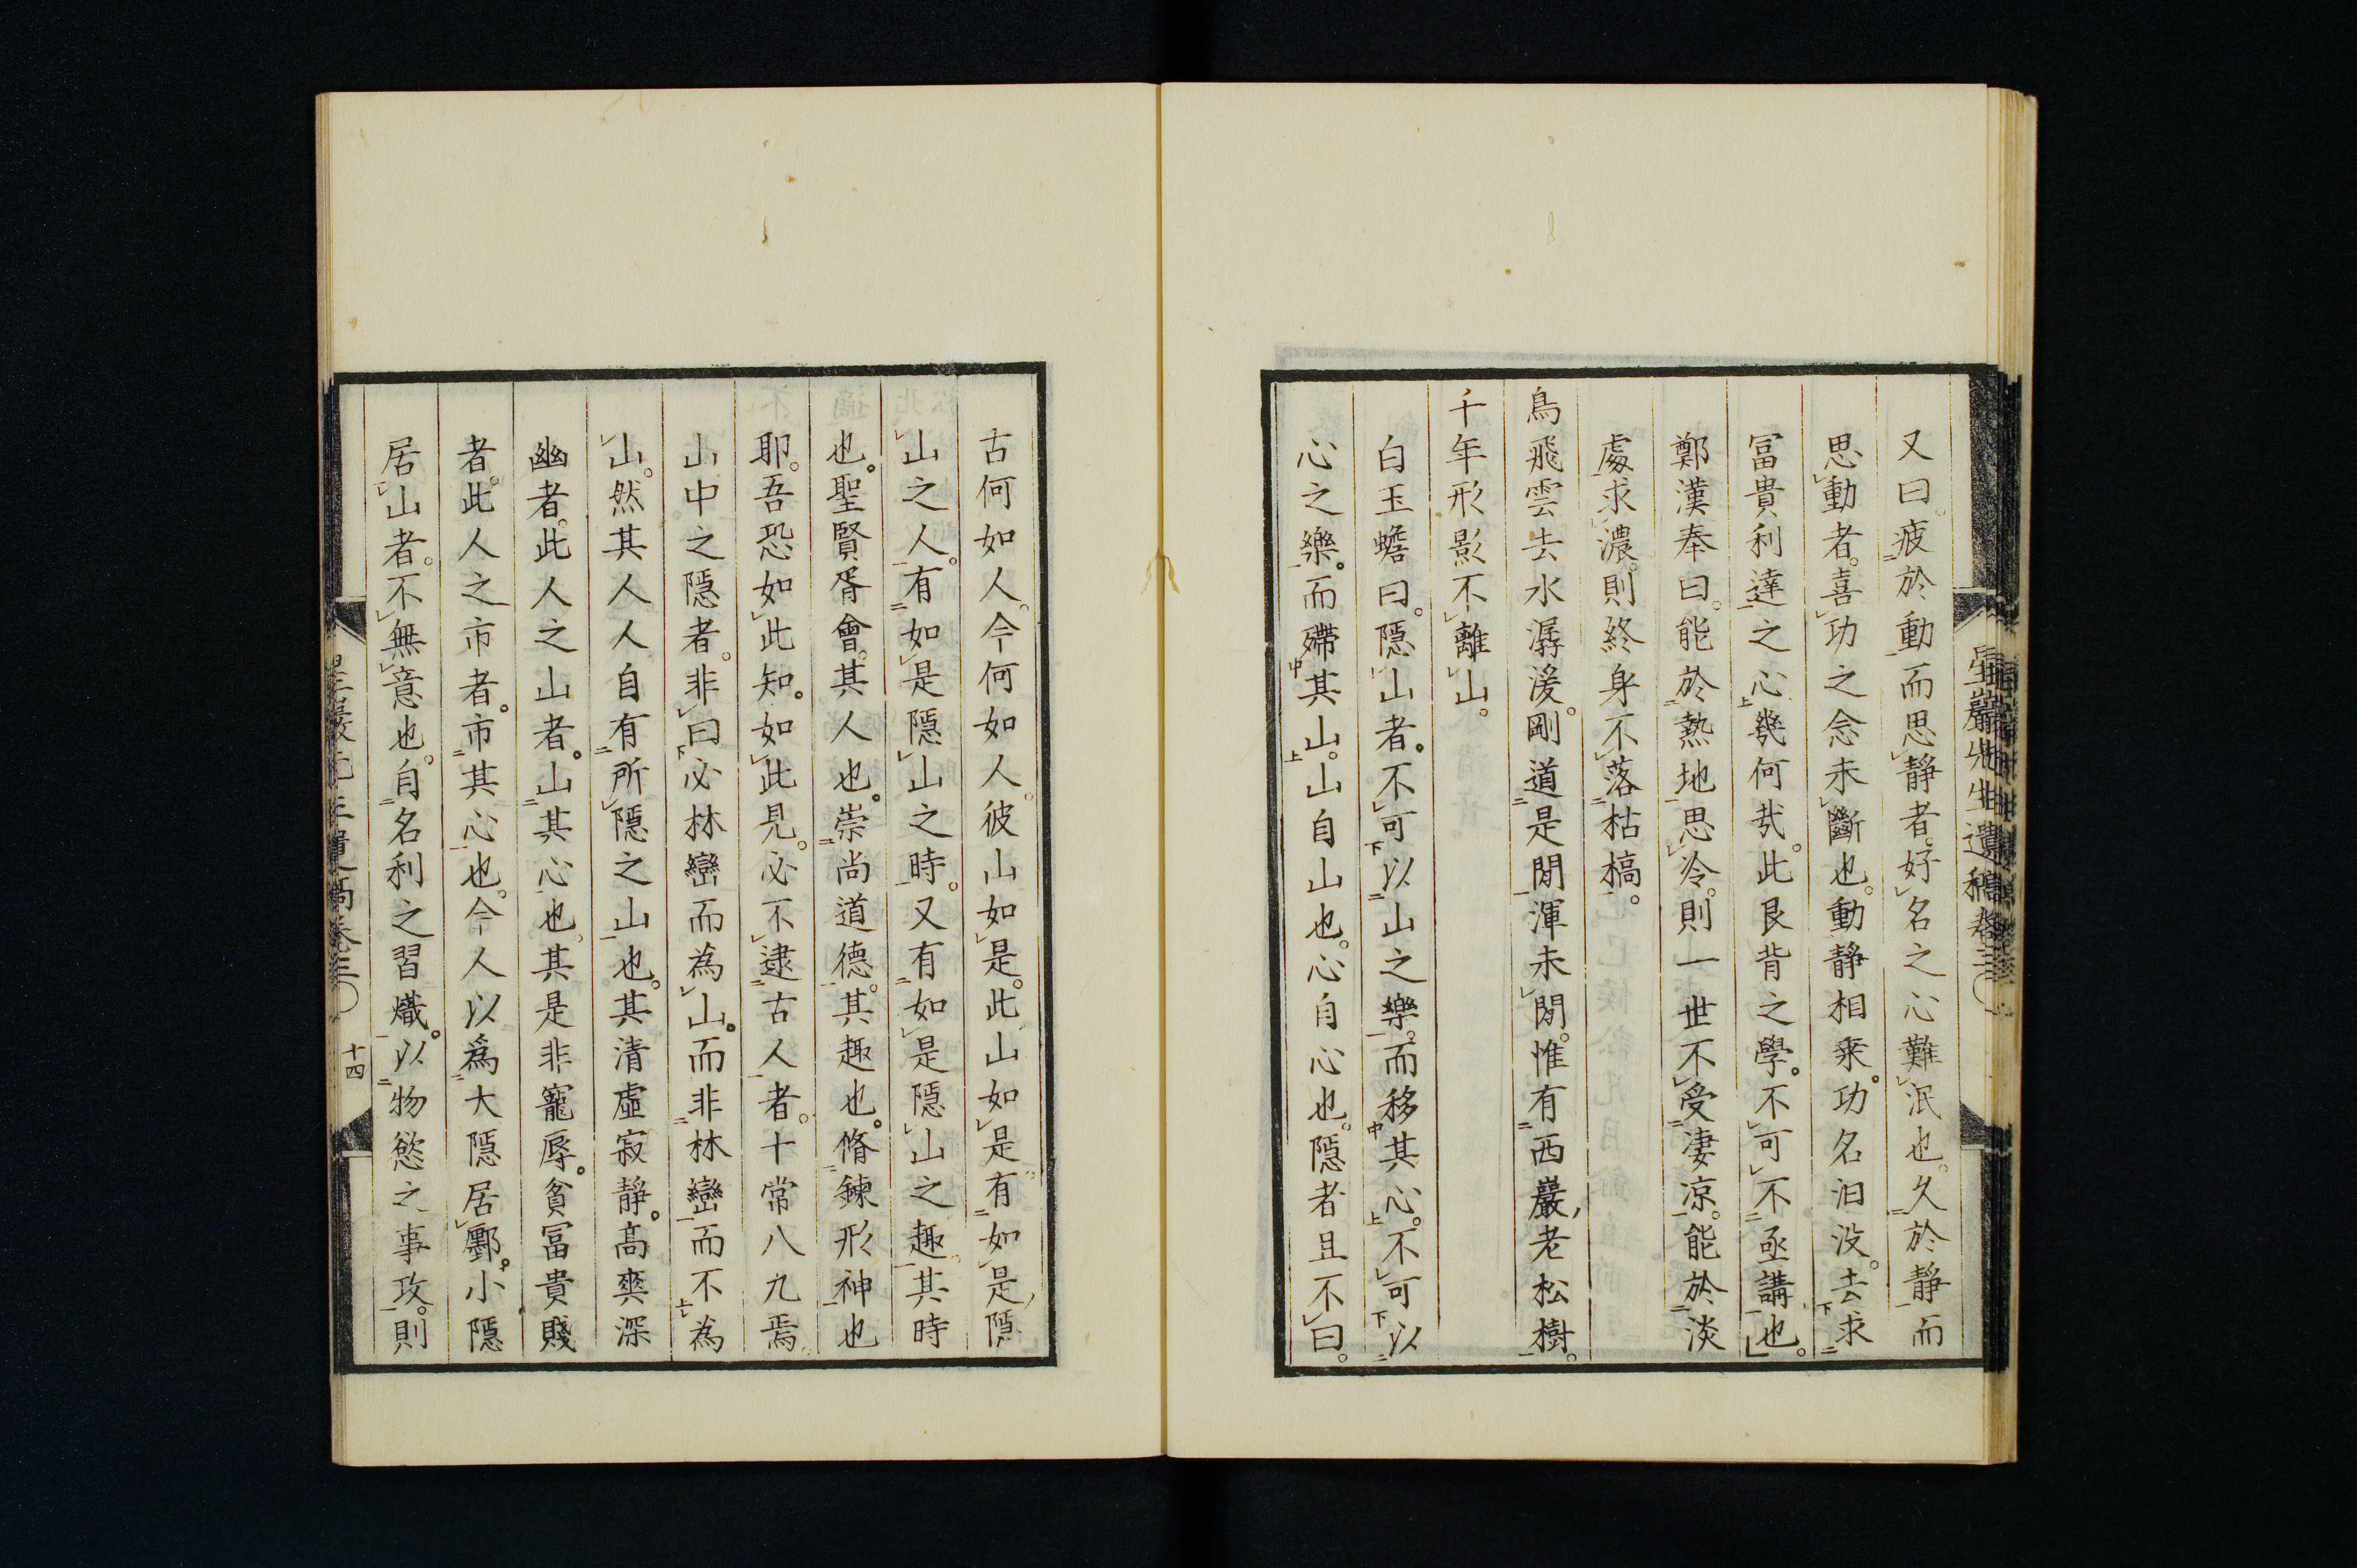 又曰。疲於動而思靜者。好名之心難泯也。久於靜而
思動者。喜功之念未斷也。動靜相乘。功名汩没。去求
冨貴利達之心幾何哉。此艮背之學。不可不亟講也。
鄭漢奉曰。能於熱地思冷。則一世不受凄涼。能於淡
處求濃。則終身不落枯槁。
鳥飛雲去水潺湲。剛道是閒渾未閒。惟有西巖老松樹。
千年形影不離山。
白玉蟾曰。隱山者。不可以山之樂。而移其心。不可以
心之樂。而殢其山。山自山也。心自心也。隱者且不曰。
星巖先生遺稿卷三
古何如人。今何如人。彼山如是。此山如是。有如是隱
山之人。有如是隱山之時。又有如是隱山之趣。其時
也。聖賢胥會。其人也。崇尚道德。其趣也。脩鍊形神也
耶。吾恐如此知。如此見。必不逮古人者。十常八九焉。
山中之隱者。非曰必林巒而為山。而非林巒而不為
山。然其人人自有所隱之山也。其清虛寂靜。高爽深
幽者。此人之山者。山其心也。其是非寵辱。貧冨貴賤
者。此人之市者。市其心也。今人以爲大隱居鄽。小隱
居山者。不無意也。自名利之習熾。以物慾之事攻。則
十四